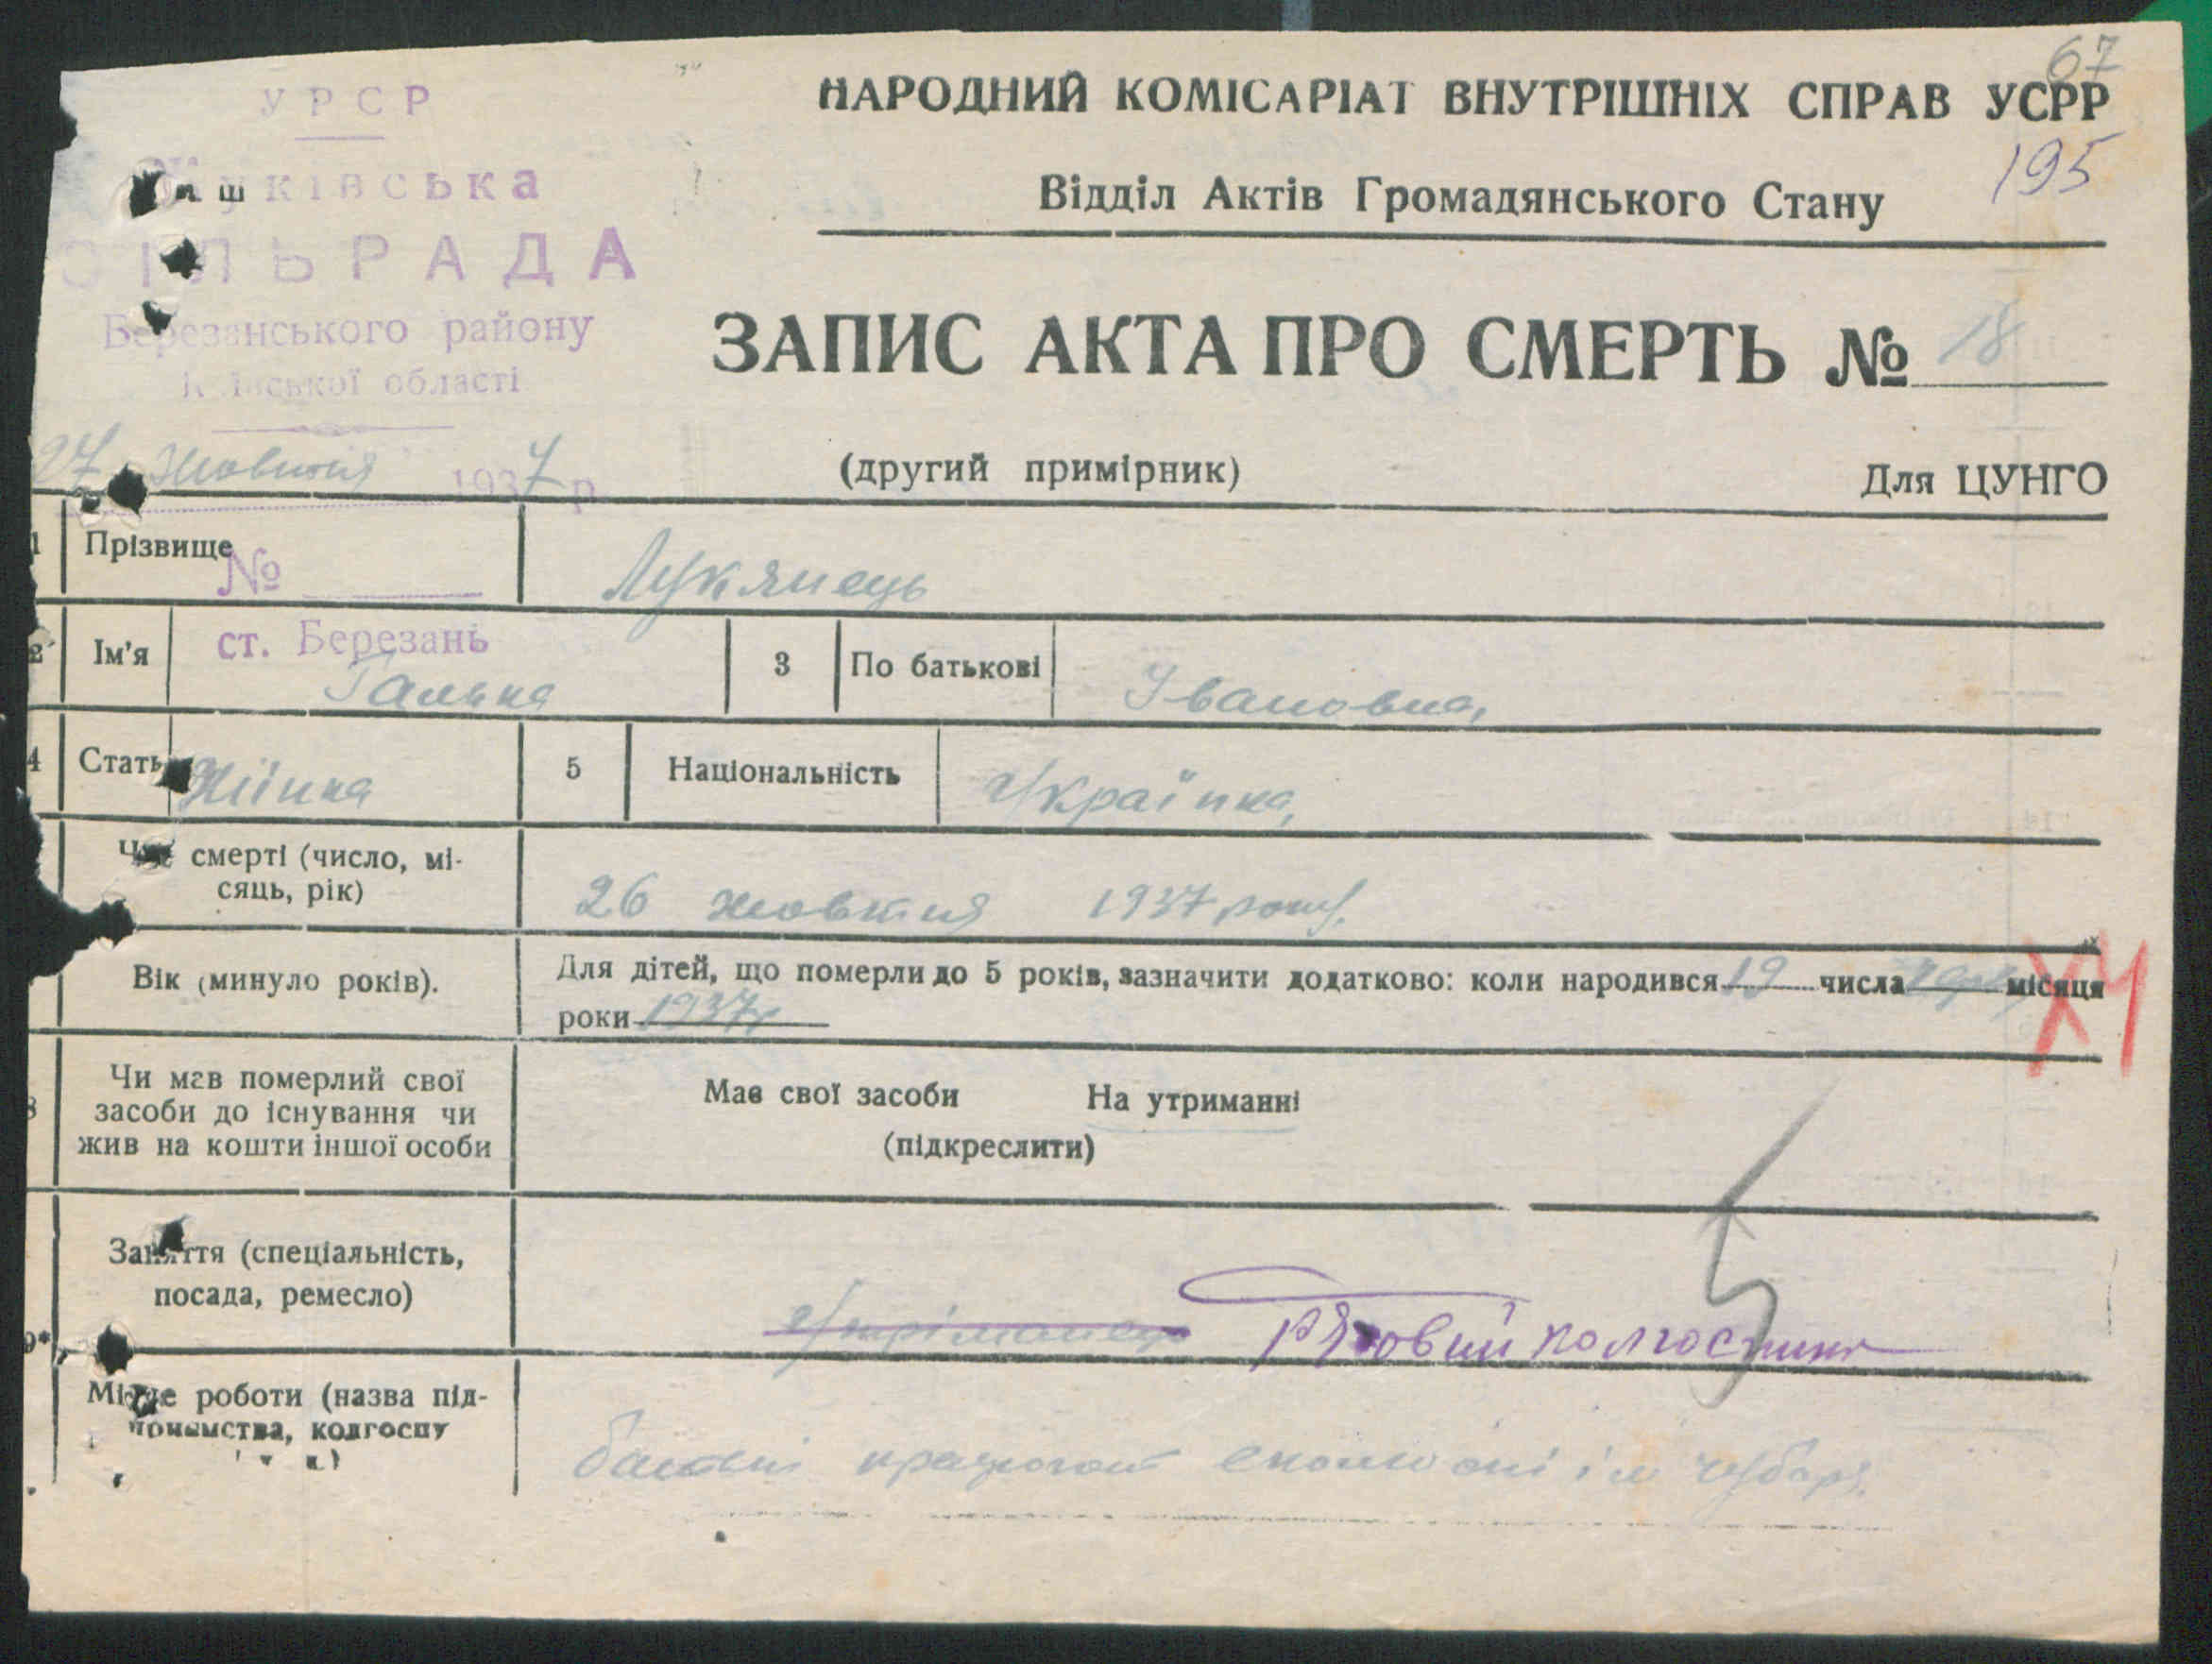 67
УРСР
НАРОДНИЙ КОМІСАРІАТ ВНУТРІШНІХ СПРАВ УСРР
195
Жуківська
Відділ Актів Громадянського Стану
СІЛЬРАДА
Березанського району
ЗАПИС АКТА ПРО СМЕРТЬ № 18
Київської області
27 жовтня 1937 р.
(другий примірник)
Для ЦУНГО
1 Прізвище Лукянець
№
ст. Березань
2 Ім'я Галька 3 По батькові Івановна,
4 Стать Жінка 5 Національність Українка,
Час смерті (число, мі-
сяць, рік)
26 жовтня 1937 року.
Вік (минуло років).
Для дітей, що померли до 5 років, зазначити додатково: коли народився 19 числа місяця
роки 1937 г
8 Чи мав померлий свої
засоби до існування чи
жив на кошти іншої особи
Має свої засоби На утриманні
(підкреслити)
Заняття (спеціальність,
посада, ремесло)
Рядовий колгоспник
9*
Місце роботи (назва під-
приємства, колгоспу
батьки працюют економії ім Чубаря.